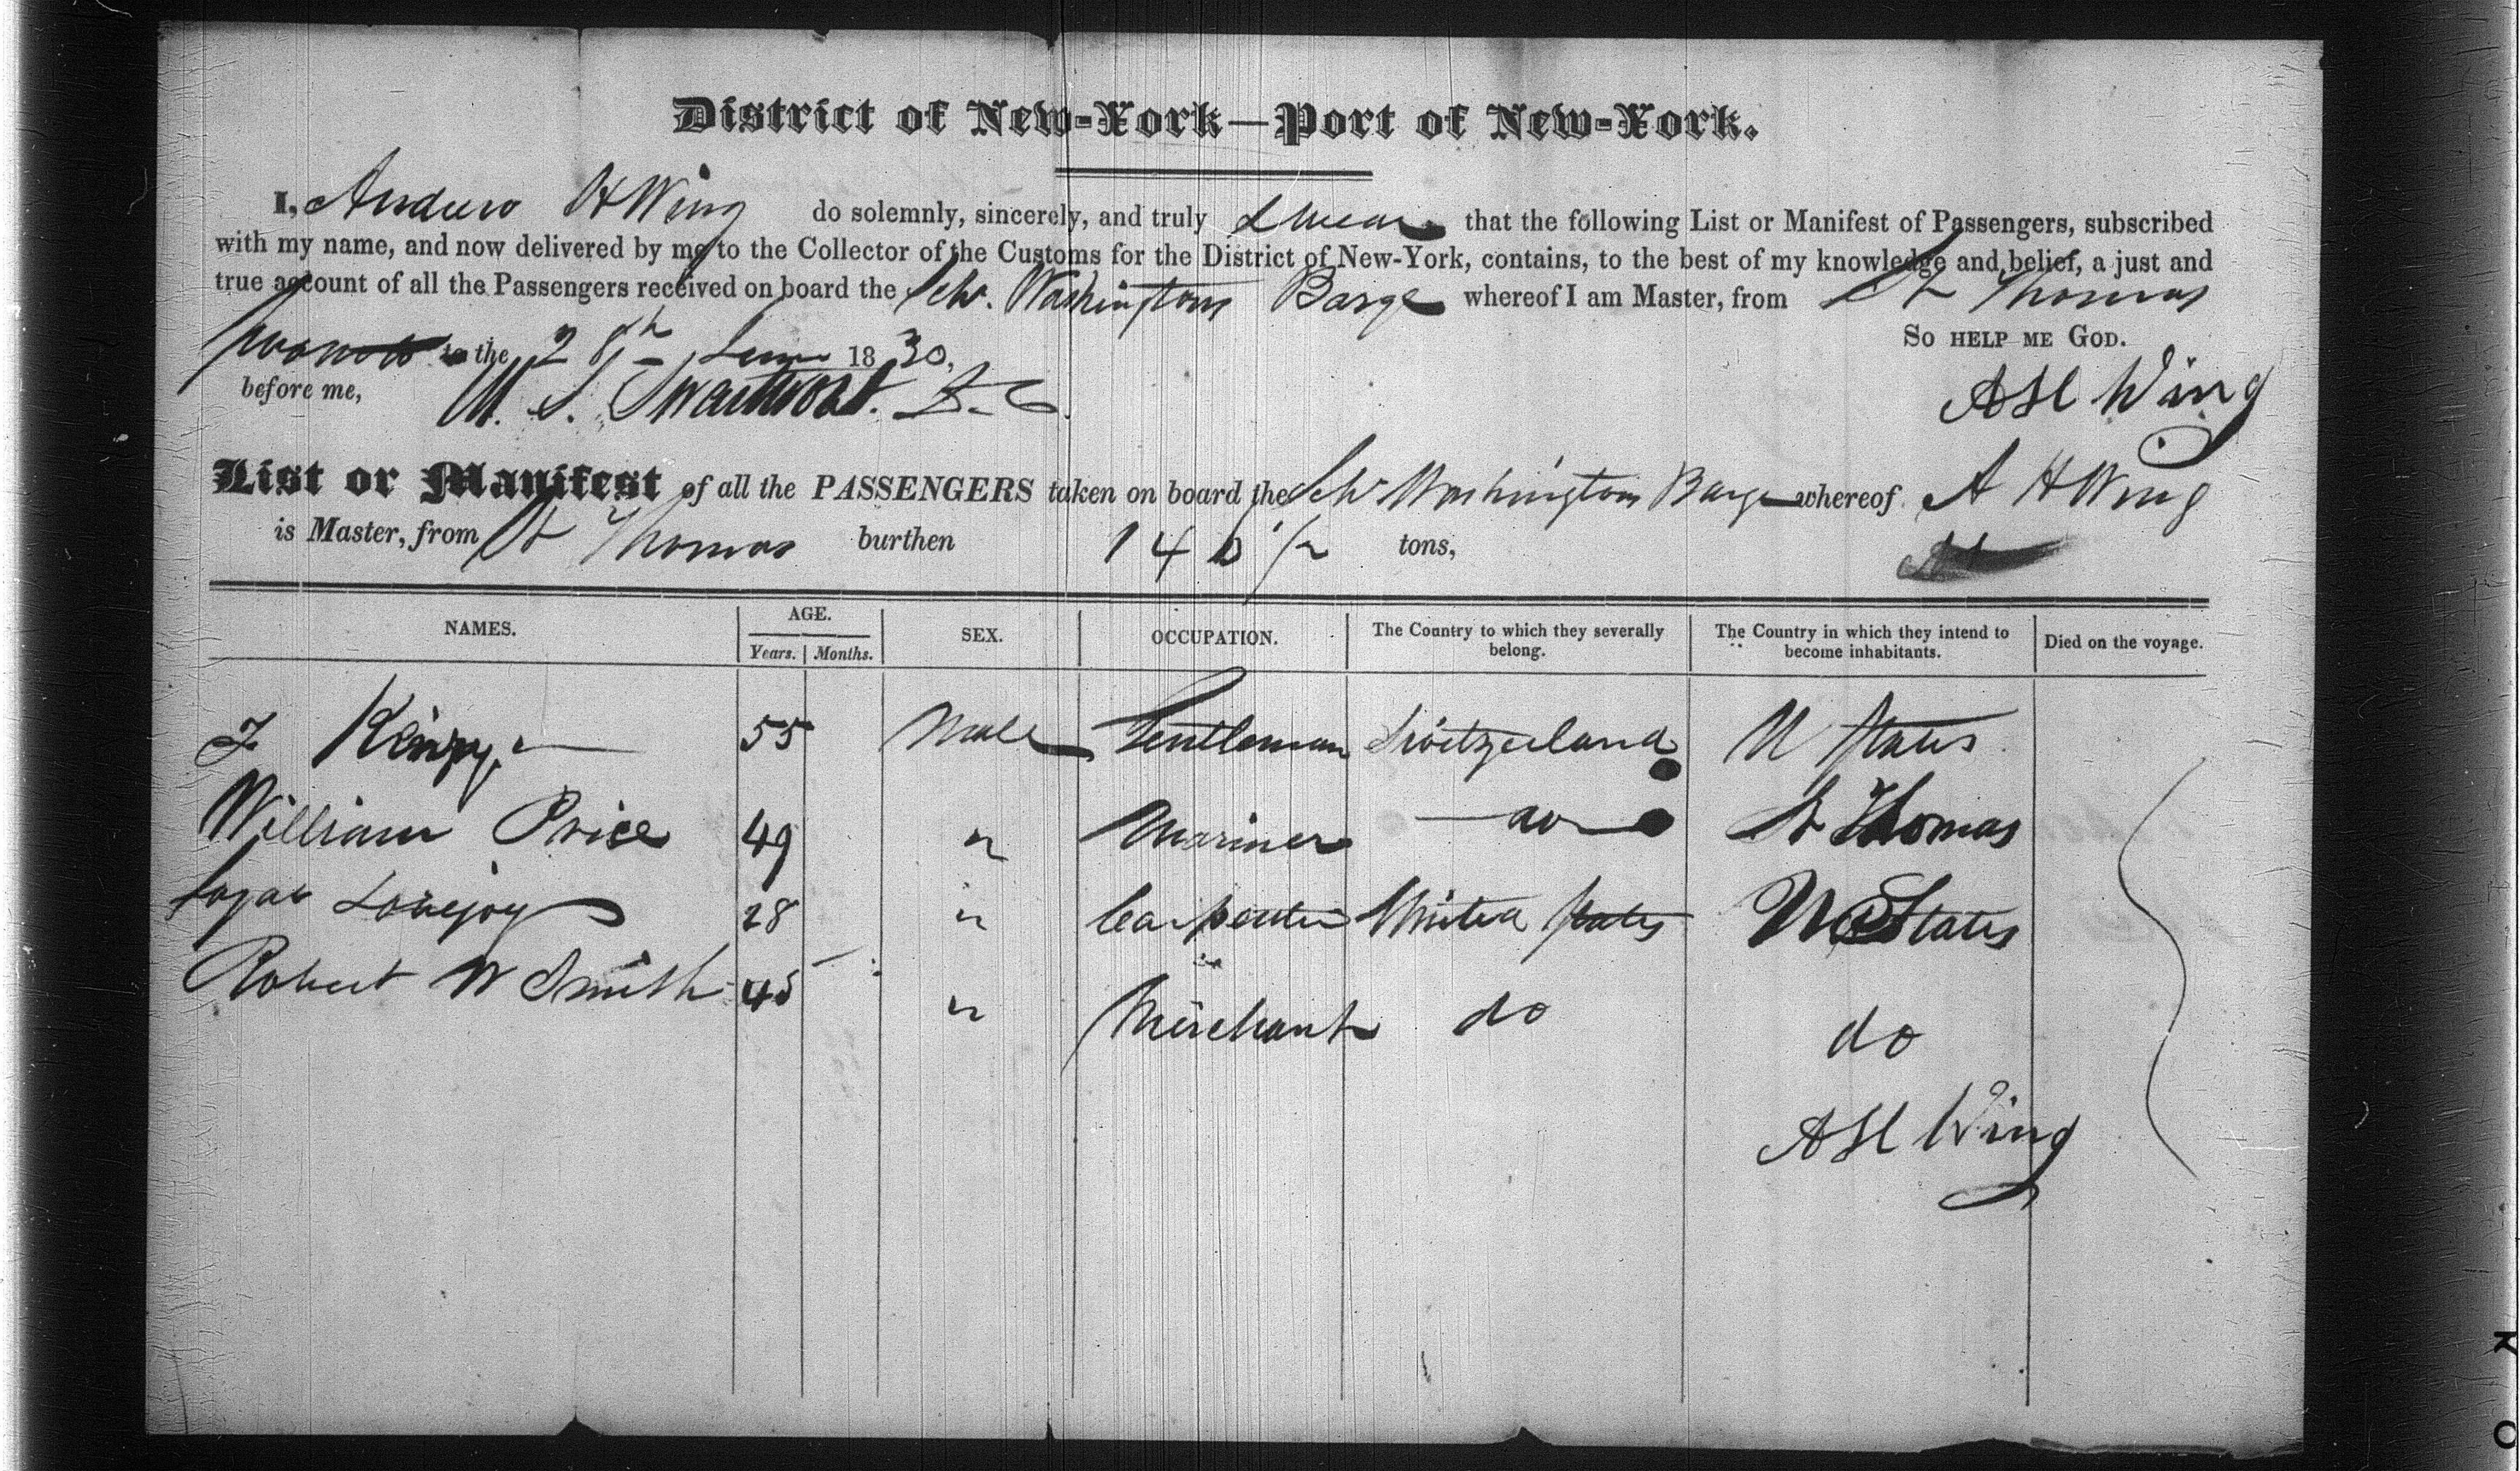 District of New-York—Port of New-York.
I, Andrew H Wing do solemnly, sincerely, and truly swear that the following List or Manifest of Passengers, subscribed
with my name, and now delivered by me to the Collector of the Customs for the District of New-York, contains, to the best of my knowledge and belief, a just and
true account of all the Passengers received on board the Schr. Washington Barge whereof I am Master, from St Thomas
to the 28th June 1830. So help me God.
before me, M. S. Swartwout. D. C. A H Wing
List or Manifest of all the PASSENGERS taken on board the Schr Washington Barge whereof A H Wing
is Master, from St Thomas burthen tons,
NAMES. AGE. Years. Months. SEX. OCCUPATION. The Country to which they severally belong. The Country in which they intend to become inhabitants. Died on the voyage.
55 Male Gentleman Switzerland U States
William Price 49 " Mariner do St Thomas
Lovejoy 28 " Carpenter United States U States
Robert W Smith 45 " Merchant do do
A H Wing